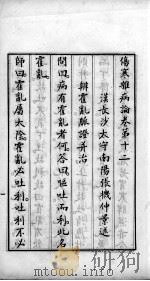 傷寒雜病論卷第十二
漢長沙太守南陽張仲景述
辨霍亂脈證并治
問曰病有霍亂者何答曰嘔吐而利此名
霍亂
師曰霍亂屬太陰霍亂必吐利吐利不必